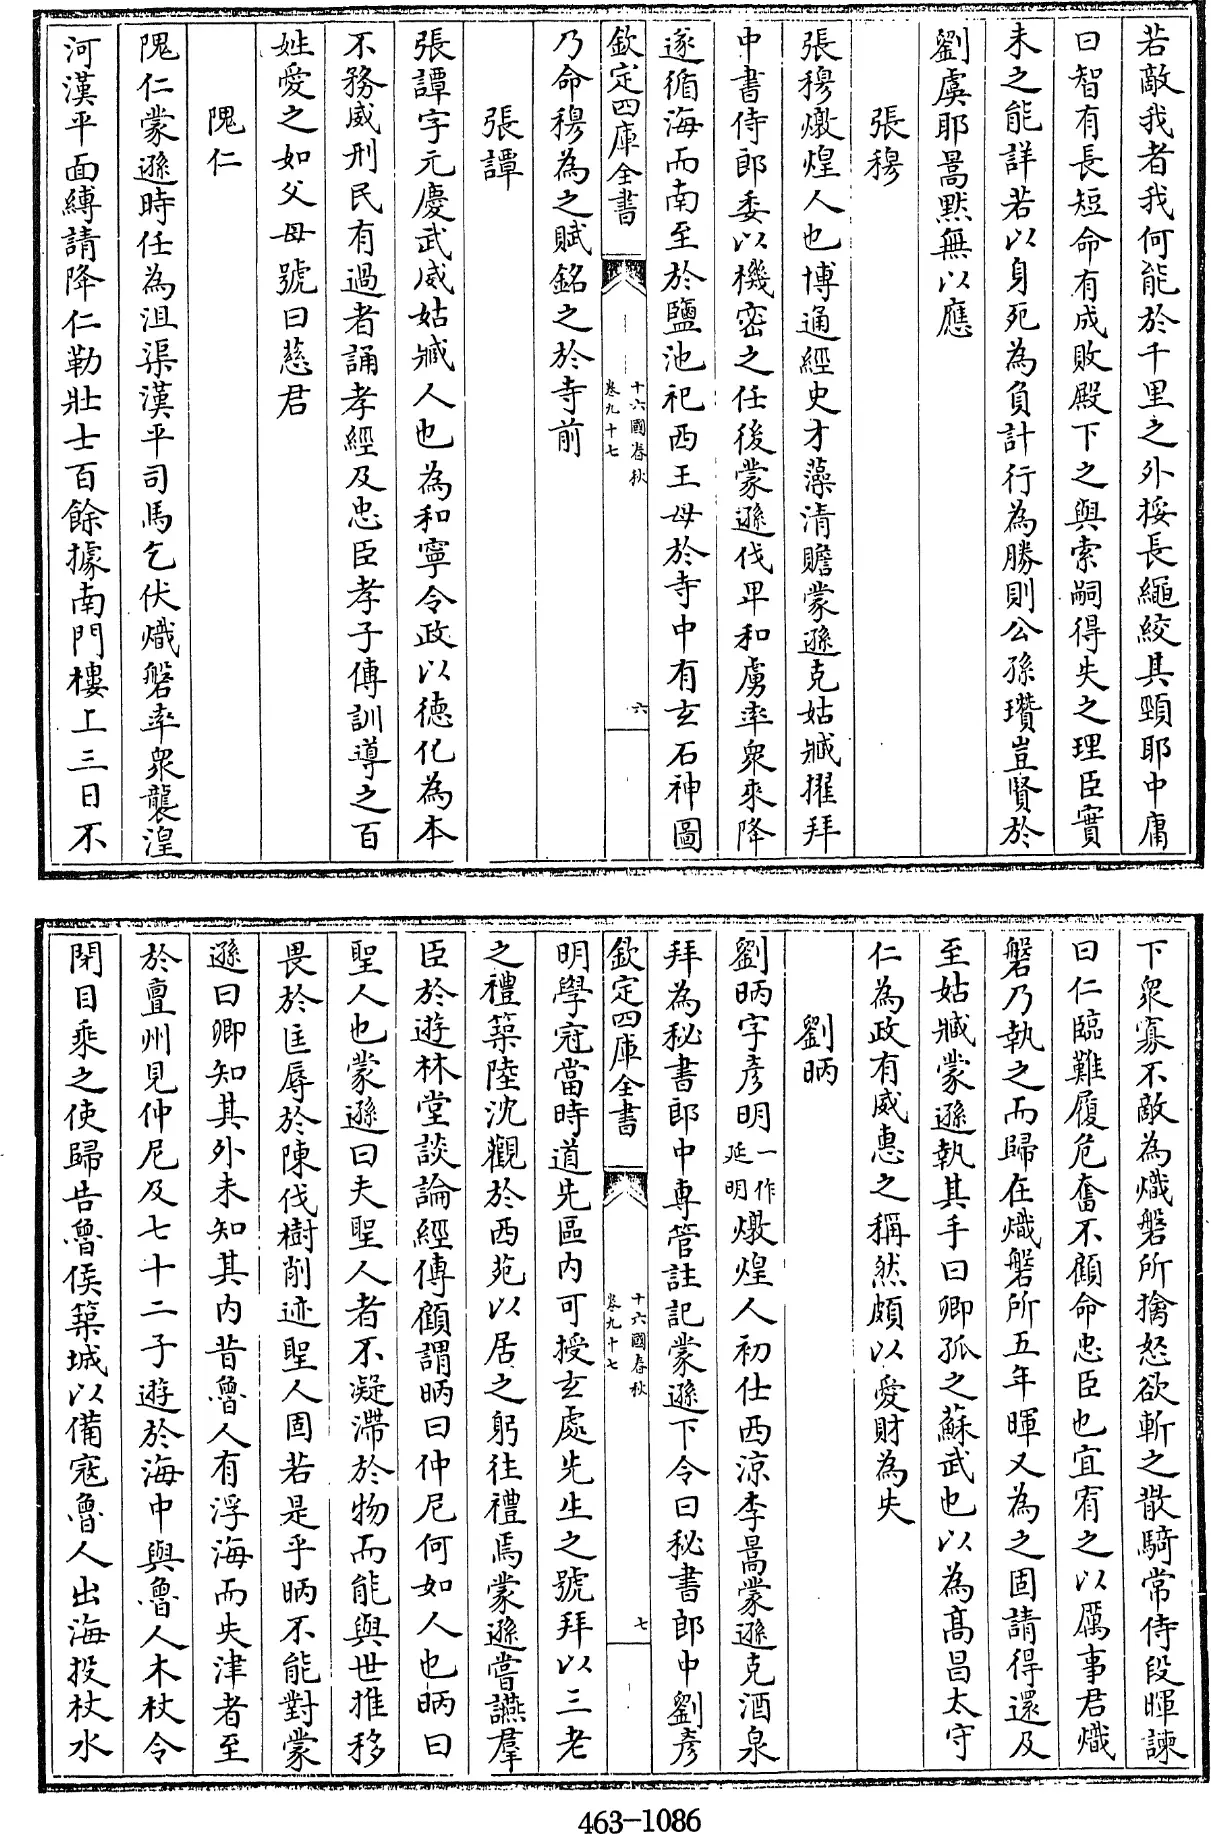 若敵我者我何能於千里之外挼長繩絞其頸耶中庸
曰智有長短命有成敗殿下之與索嗣得失之理臣實
未之能詳若以身死為負計行為勝則公孫瓚豈賢於
劉虞耶暠黙無以應
張穆
張穆燉煌人也博通經史才藻清贍蒙遜克姑臧擢拜
中書侍郎委以機密之任後蒙遜伐卑和虜率衆來降
遂循海而南至於鹽池祀西王母於寺中有玄石神圖
欽定四庫全書
十六國春秋
卷九十七
六
乃命穆為之賦銘之於寺前
張譚
張譚字元慶武威姑臧人也為和寧令政以德化為本
不務威刑民有過者誦孝經及忠臣孝子傳訓導之百
姓愛之如父母號曰慈君
隗仁
隗仁蒙遜時任為沮渠漢平司馬乞伏熾磐率衆襲湟
河漢平面縛請降仁勒壯士百餘據南門樓上三日不
下衆寡不敵為熾磐所擒怒欲斬之散騎常侍段暉諫
曰仁臨難履危奮不顧命忠臣也宜宥之以厲事君熾
磐乃執之而歸在熾磐所五年暉又為之固請得還及
至姑臧蒙遜執其手曰卿孤之蘇武也以為髙昌太守
仁為政有威惠之稱然頗以愛財為失
劉昞
劉昞字彥明一作延明燉煌人初仕西涼李暠蒙遜克酒泉
拜為秘書郎中專管註記蒙遜下令曰秘書郎中劉彥
欽定四庫全書
十六國春秋
卷九十七
七
明學冠當時道先區内可授玄處先生之號拜以三老
之禮築陸沈觀於西苑以居之躬往禮焉蒙遜嘗讌羣
臣於遊林堂談論經傳顧謂昞曰仲尼何如人也昞曰
聖人也蒙遜曰夫聖人者不凝滯於物而能與世推移
畏於匡辱於陳伐樹削迹聖人固若是乎昞不能對蒙
遜曰卿知其外未知其内昔魯人有浮海而失津者至
於亶州見仲尼及七十二子遊於海中與魯人木杖令
閉目乘之使歸告魯侯築城以備寇魯人出海投杖水
463-1086